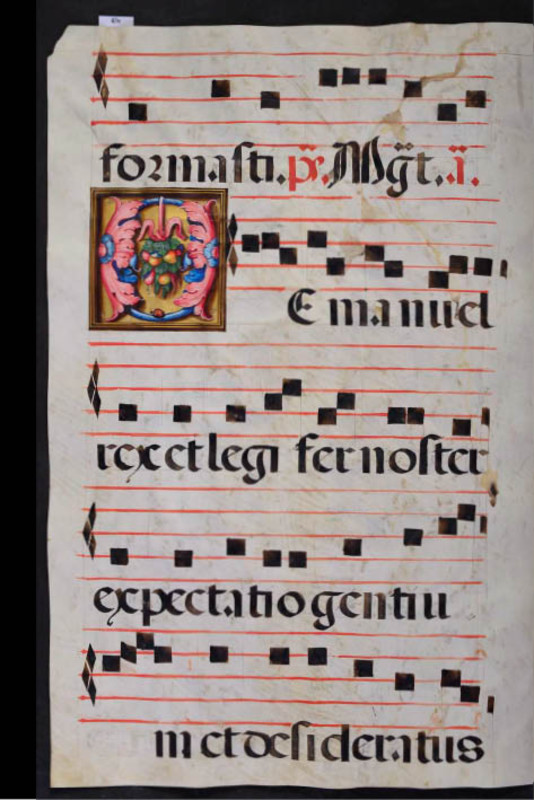 formasti. ps. Mgt. i.
O Emanuel
rex et legi fer noster
expectatio gentiu
m et desideratus